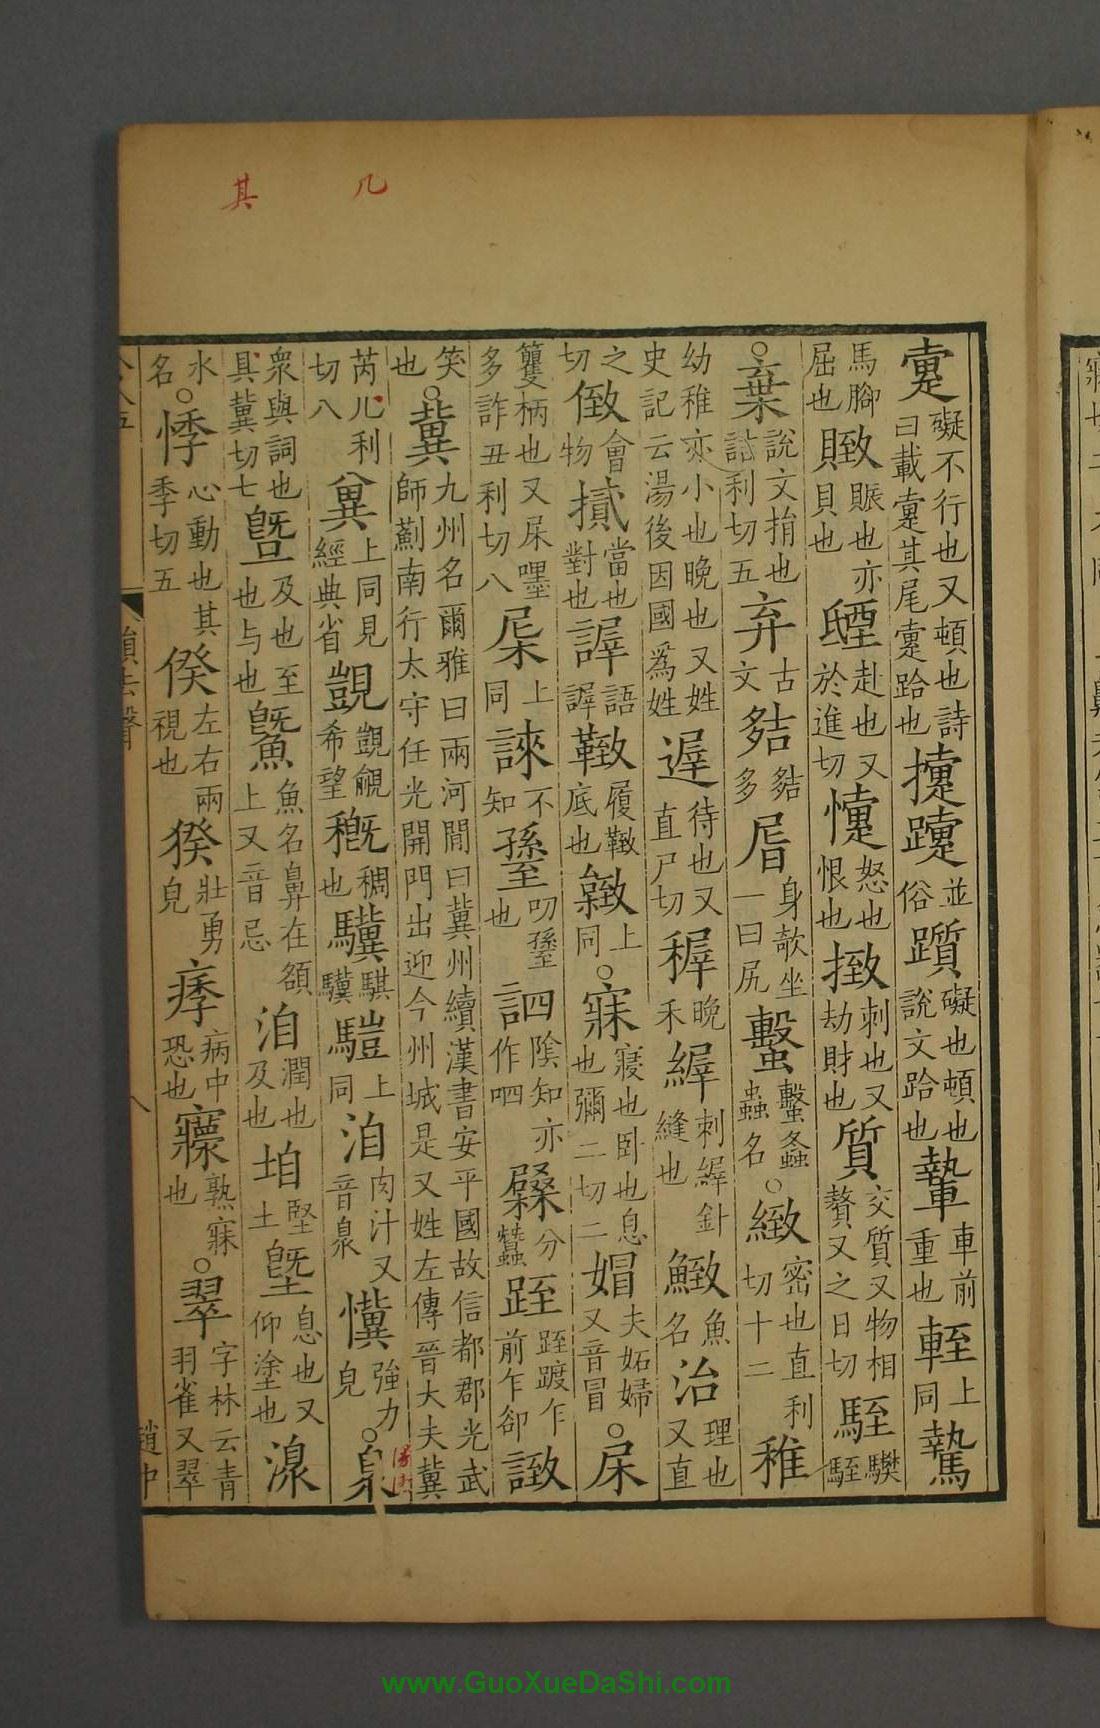 几
其
疐礙不行也又頓也詩曰載疐其尾疐跲也𢷟躓並俗躓礙也頓也說文跲也䡹車前重也輊上同騺
馬腳屈也䝰賑也亦貝也赴也又於進切懥怒也恨也㨖刺也又劫財也質交質又物相贅又之日切駤驇駤
○棄說文捐也詰利切五弃古文㚌㚌多㞓身欹坐一曰尻䗁䗁螽蟲名○緻密也直利切十二稚
幼稚亦小也晚也又姓史記云湯後因國爲姓遟待也又直尸切稺晚禾縪刺縪針縫也䱥魚名治理也又直
之切㨖會物㩼當也對也謘語謘䩢履䩢底也緻上同○寐寢也臥也息也彌二切二媢夫妬婦又音冒○𡱁
籰柄也又𡱁㗌多詐丑利切八杘上同誺不知䌛叨䌛也訵陰知亦作呬𧕯分蠶跮跮踱乍前乍卻䛗
笑也○冀九州名爾雅曰兩河閒曰冀州續漢書安平國故信都郡光武師薊南行太守任光開門出迎今州城是又姓左傳晉大夫冀
芮几利切八兾上同見經典省覬覬覦希望穊稠也驥騏驥𩥉上同洎肉汁又音臮懻強力皃○臮
衆與詞也具冀切七曁及也至也与也鱀魚名鼻在額上又音忌洎潤也及也垍堅土墍息也又仰塗也湶
水名○悸心動也其季切五㑧左右兩視也猤壯勇皃痵病中恐也㝥熟寐也○翠字林云青羽雀又翠
韻去聲
八
趙中
www.GuoXueDaShi.com